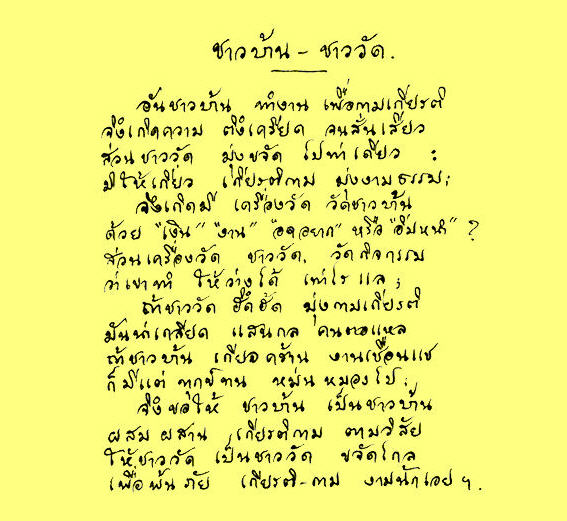 ชาวบ้าน – ชาววัด.
อันชาวบ้าน ทำงาน เพื่อกามเกียรติ
จึงเกิดความ ตึงเครียด จนสั่นเสียว
ส่วนชาววัด มุ่งขจัด ไปท่าเดียว :
มิให้เกี่ยว เกียรติกาม มุ่งงามธรรม;
จึงเกิดมี เครื่องวัด วัดชาวบ้าน
ด้วย "เงิน" "งาน" "อดอยาก" หรือ "อิ่มหนำ" ?
ส่วนเครื่องวัด ชาววัด, วัดกิจกรรม
ว่าเขาทำ ให้ว่างได้ เท่าไร แล ;
ถ้าชาววัด ฮึดฮัด มุ่งกามเกียรติ
มันน่าเกลียด แสนกล คนตอแหล
ถ้าชาวบ้าน เกียจคร้าน งานเชือนแช
ก็มีแต่ ทุกข์ทน หม่นหมองไป ;
จึงขอให้ ชาวบ้าน เป็นชาวบ้าน
ผสมผสาน เกียรติกาม ตามวิสัย
ให้ชาววัด เป็นชาววัด ขจัดไกล
เพื่อพ้นภัย เกียรติ-กาม งามนักเอยฯ.